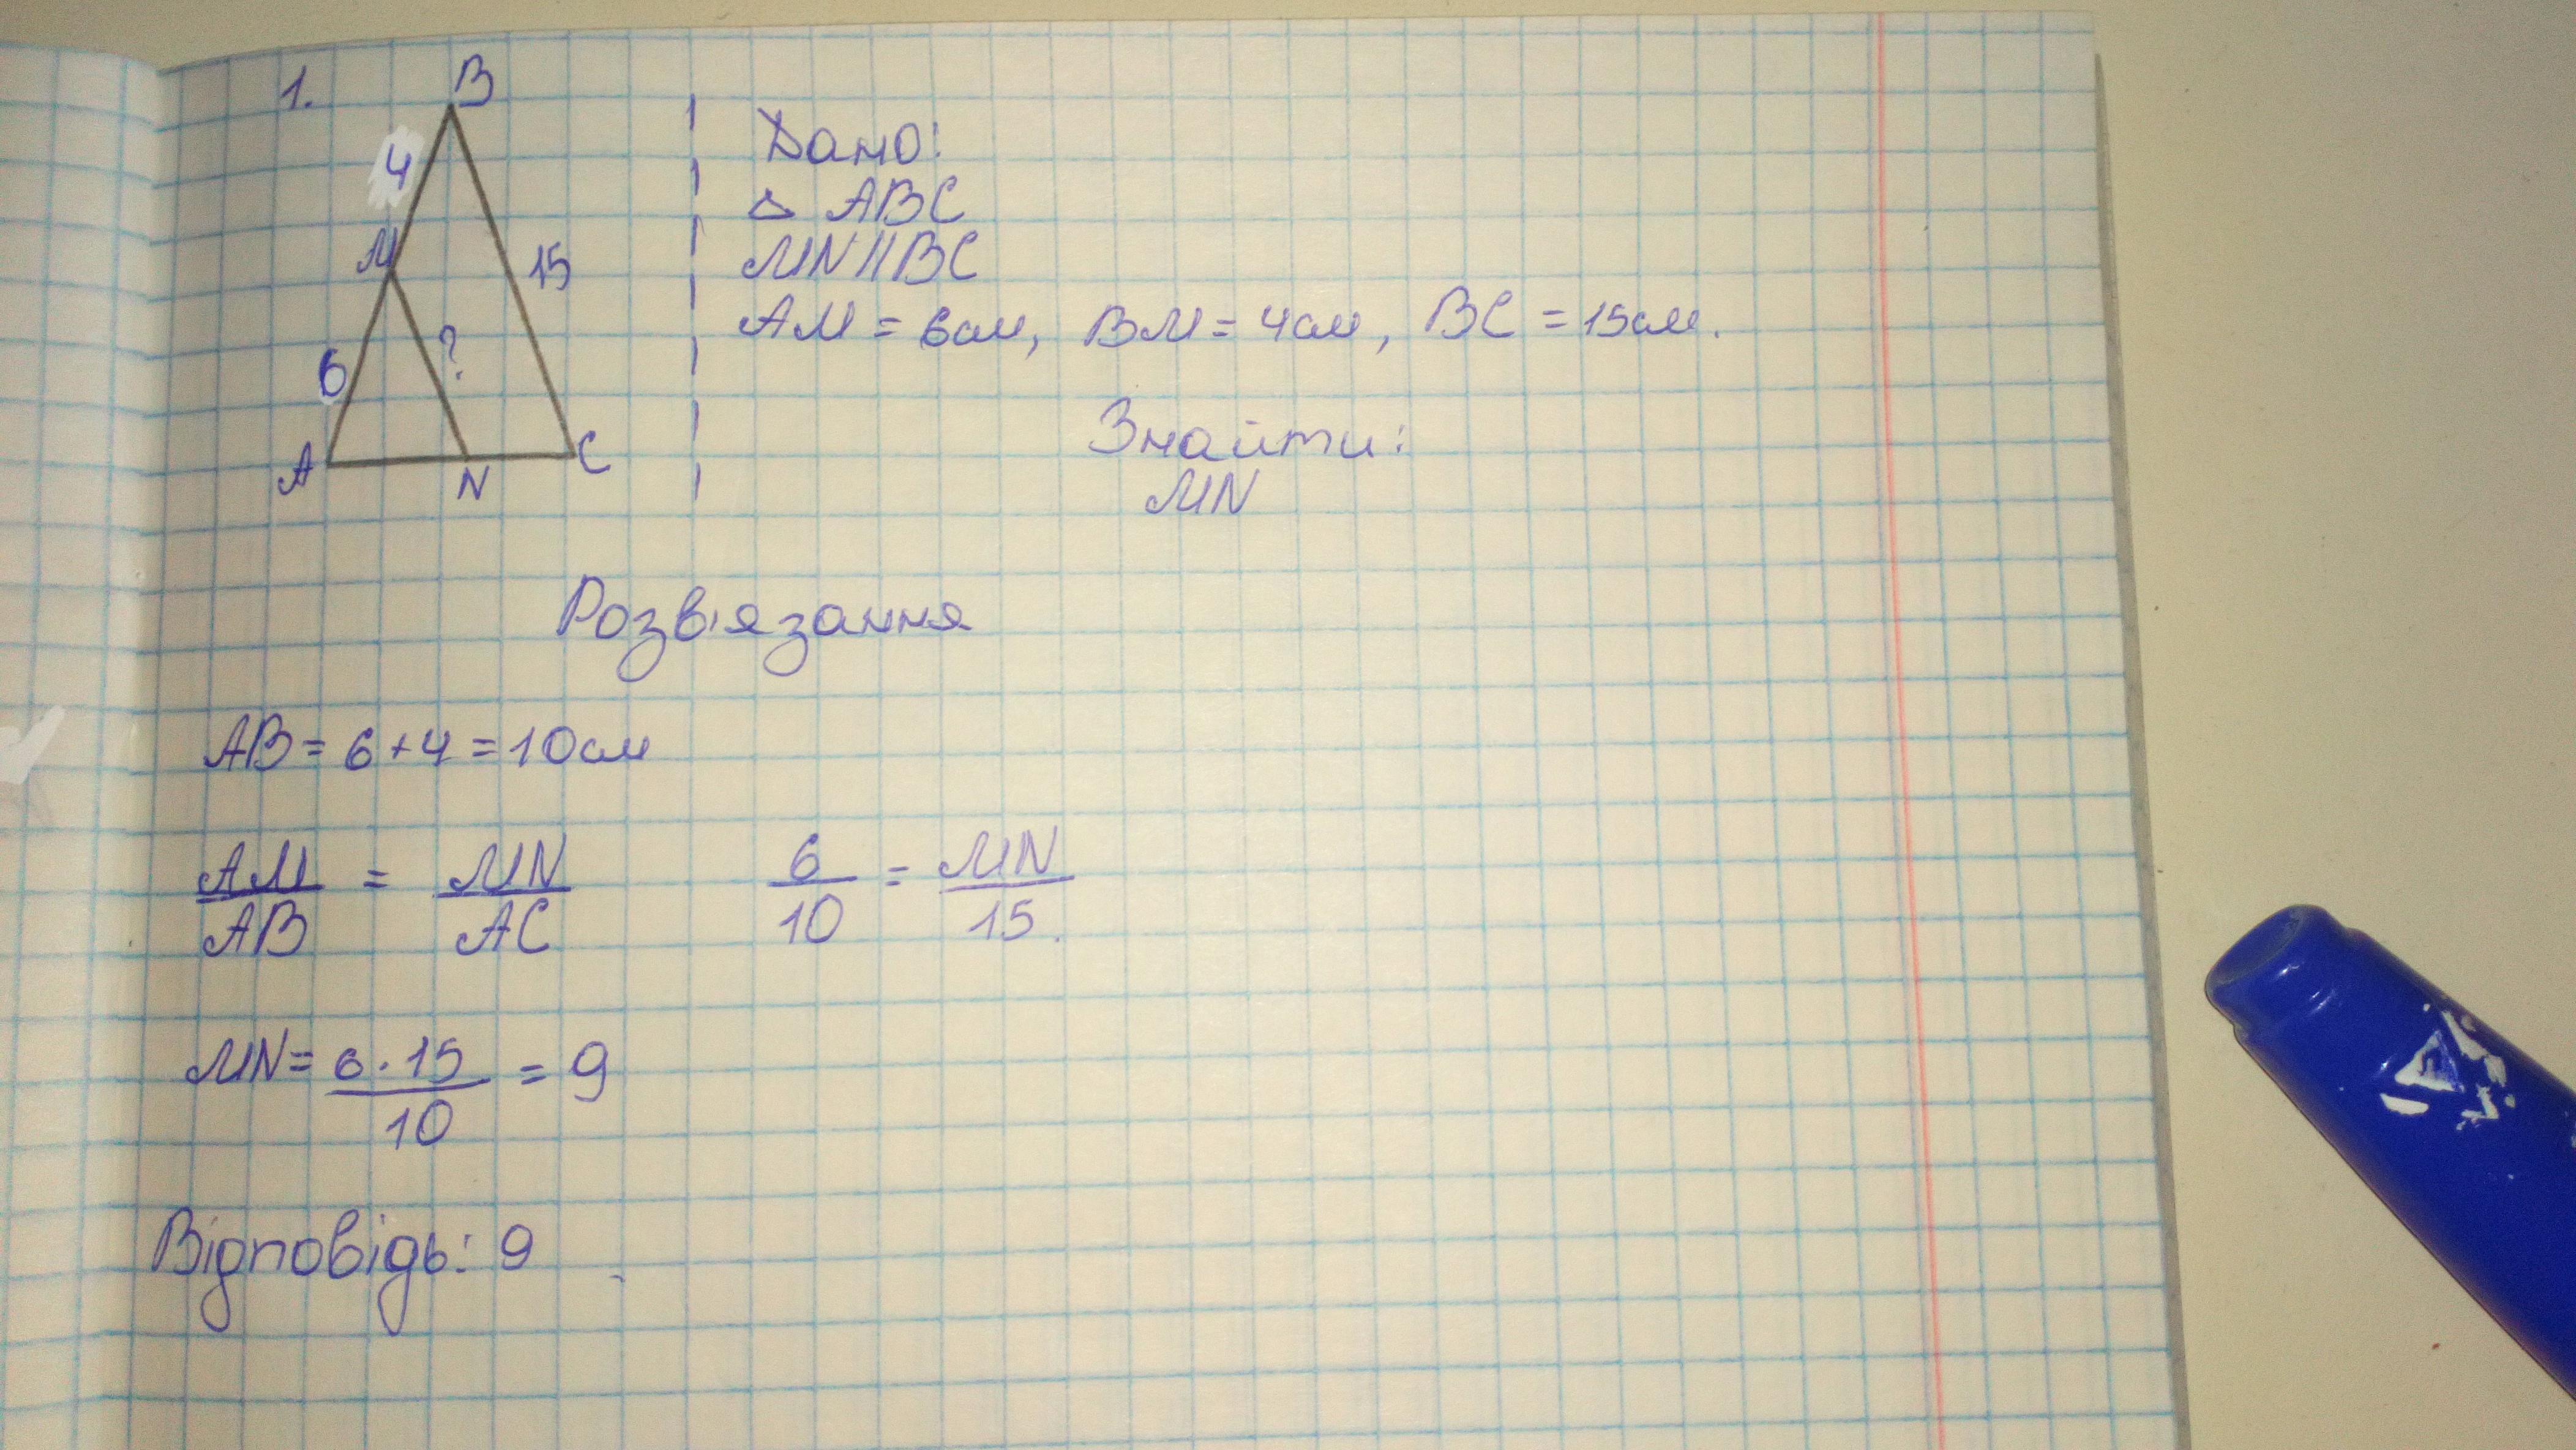 1.
B
4
M
15
6
?
A
N
C
Дано:
△ ABC
MN||BC
AM = 6см, BM = 4см, BC = 15см.
Знайти:
MN
Розв'язання
AB = 6 + 4 = 10см
AM/AB = MN/AC 6/10 = MN/15.
MN = 6 · 15/10 = 9
Відповідь: 9